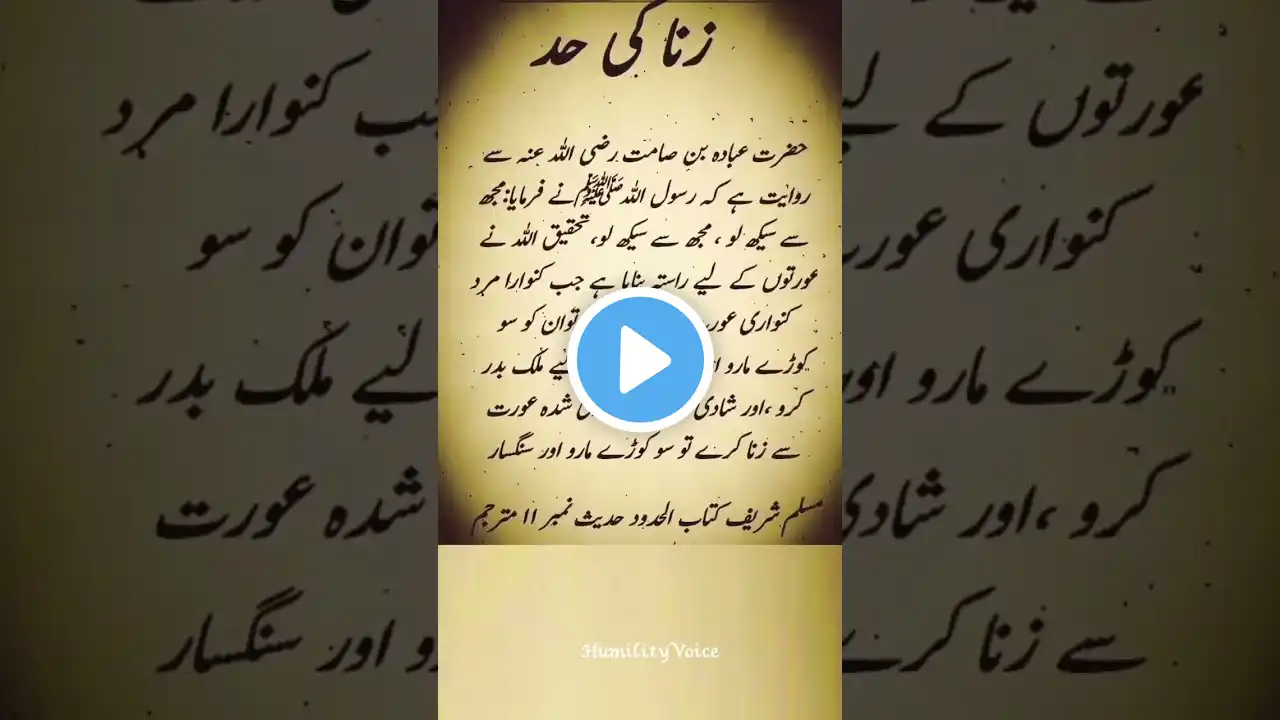 زنا کی حد
حضرت عبادہ بنِ صامت رضی اللہ عنہ سے
روایت ہے کہ رسول اللہ ﷺ نے فرمایا: مجھ
سے سیکھ لو ، مجھ سے سیکھ لو، تحقیق اللہ نے
عورتوں کے لیے راستہ بنایا ہے جب کنوارا مرد
کنواری توان کو سو
کوڑے مارو لیے ملک بدر
کرو ،اور شادی شدہ عورت
سے زنا کرے تو سو کوڑے مارو اور سنگسار
مسلم شریف کتاب الحدود حدیث نمبر ۱۱ مترجم
HumilityVoice